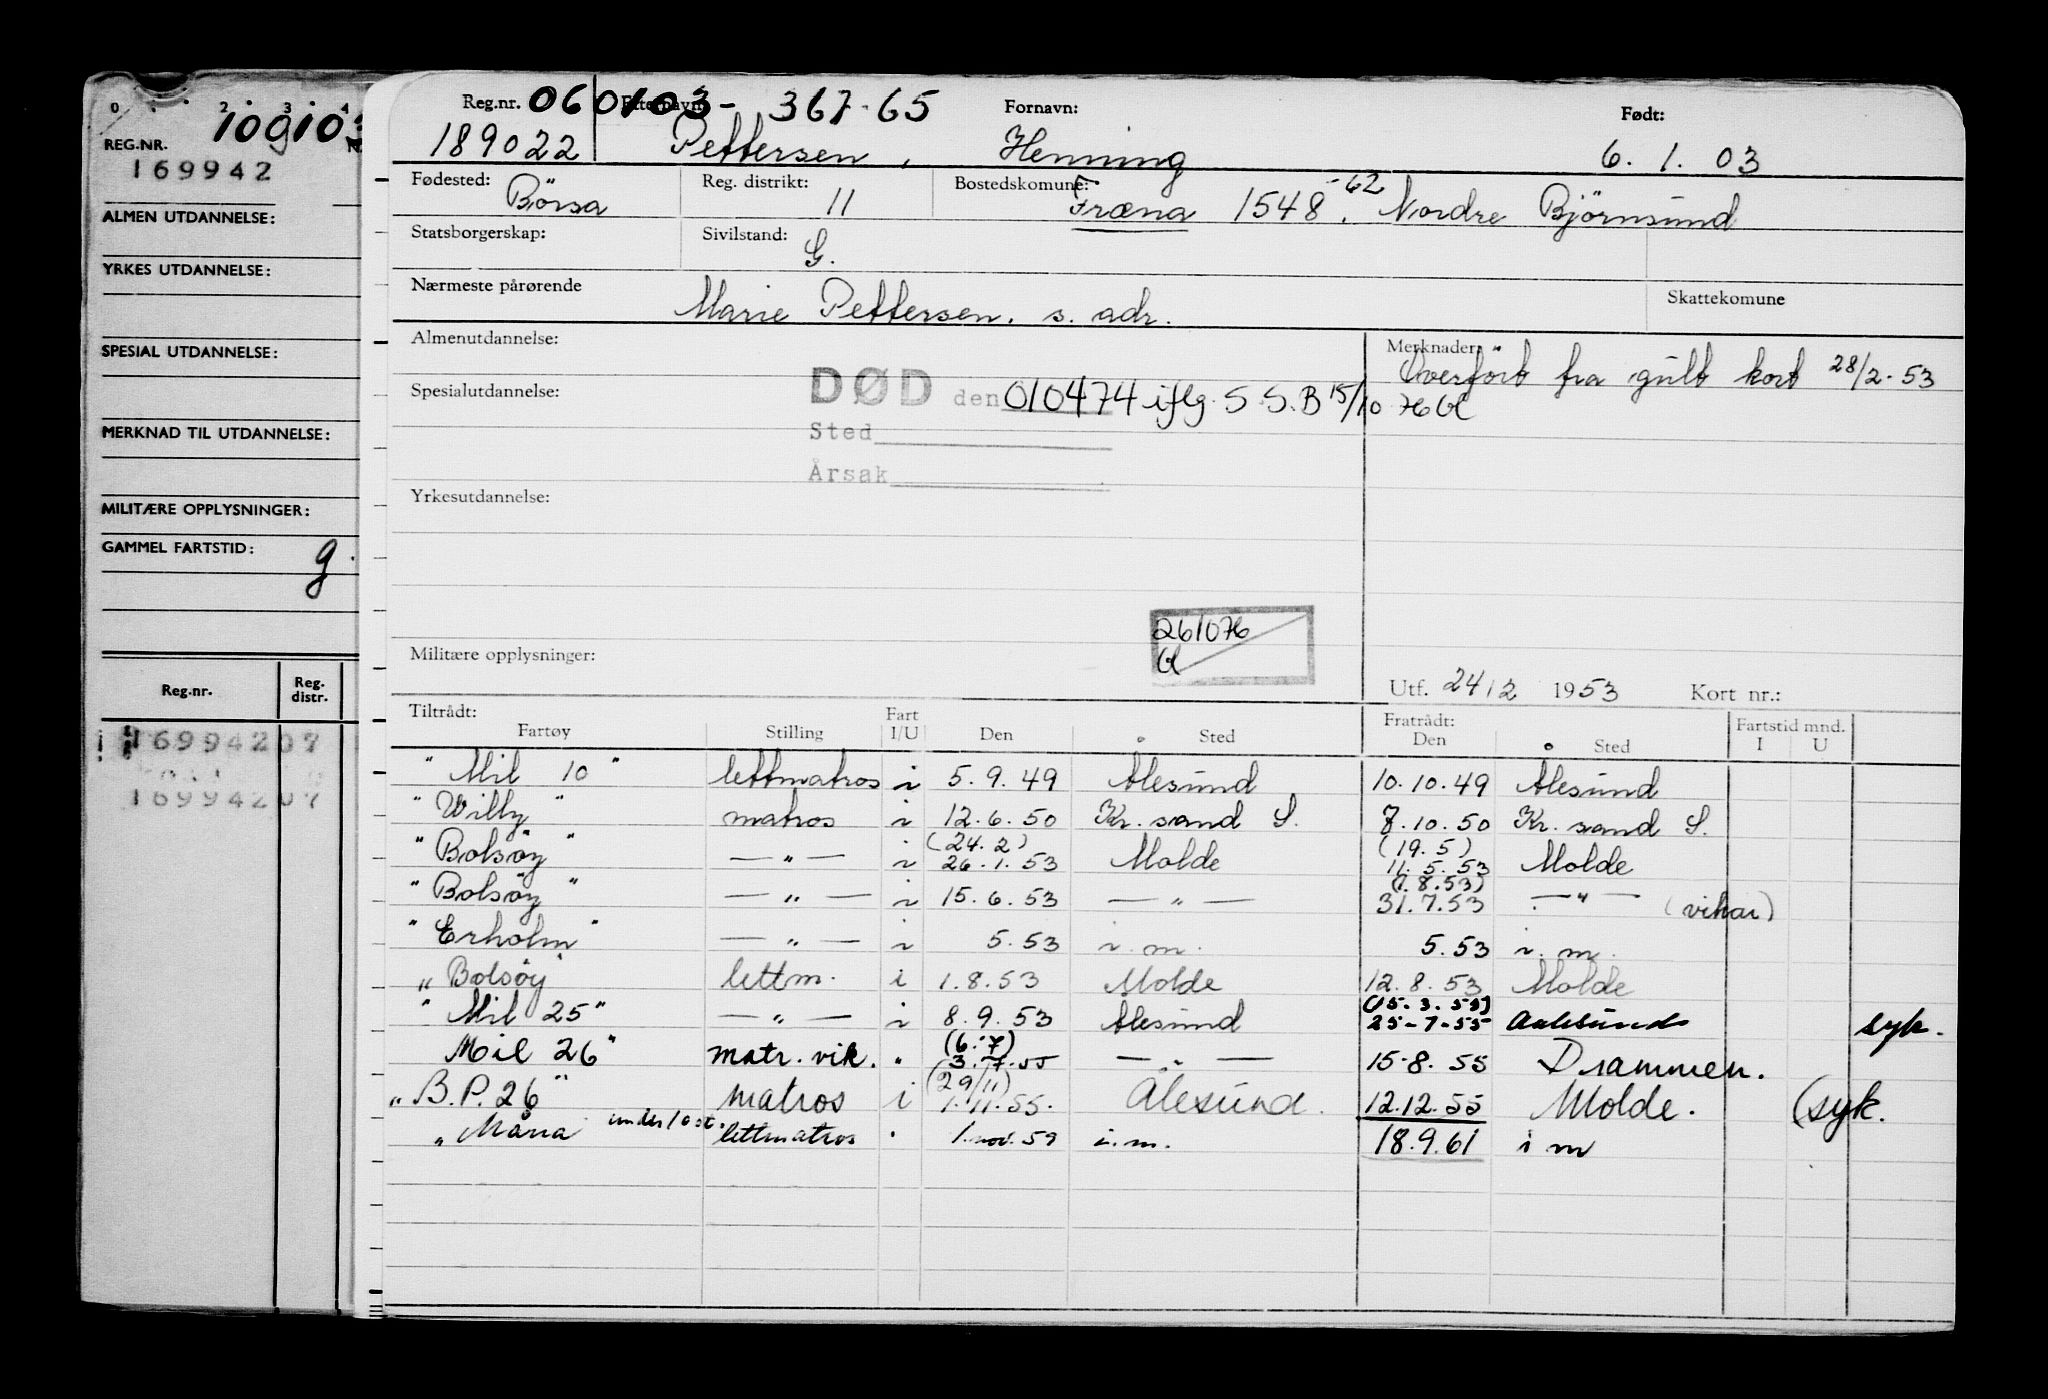 0 2 3 4
10 9 10 3
REG.NR.
169942
ALMEN UTDANNELSE:
YRKES UTDANNELSE:
SPESIAL UTDANNELSE:
MERKNAD TIL UTDANNELSE:
MILITÆRE OPPLYSNINGER:
GAMMEL FARTSTID: g.
Reg.nr. Reg. distr.
16994207
16994207
Reg.nr. 060103- 367-65 Etternavn: Fornavn: Født:
189022 Pettersen, Henning 6. 1. 03
Fødested: Börsa Reg. distrikt: 11 Bostedskomune: Fræna 1548 -62. Nordre Björnsund
Statsborgerskap: Sivilstand: G.
Nærmeste pårørende Marie Pettersen. s. adr. Skattekomune
Almenutdannelse: Merknader: Overfört fra gult kort 28/2-53
Spesialutdannelse: DØD den 010474 iflg. S.S.B 15/10 76 Gl
Sted
Årsak
Yrkesutdannelse:
261076
Gl
Militære opplysninger:
Utf. 24/2 1953 Kort nr.:
Tiltrådt: Fart Fratrådt: Fartstid mnd.
Fartøy Stilling I/U Den Sted Den Sted I U
" Mil 10 " lettmatros i 5. 9. 49 Ålesund 10. 10. 49 Ålesund
" Willy " matros i 12. 6. 50 Kr. sand S. 7. 10. 50 Kr. sand S.
(24. 2) (19. 5)
" Bolsöy " — " — i 26. 1. 53 Molde 11. 5. 53 Molde
(1. 8. 53)
" Bolsöy " — " — i 15. 6. 53 — " — 31. 7. 53 — " — (vikar)
" Erholm " — " — i 5. 53 i. m. 5. 53 i. m.
" Bolsöy " lettm. i 1. 8. 53 Molde 12. 8. 53 Molde
(15. 3. 59)
" Mil 25 " — " — i 8. 9. 53 Ålesund 25-7-55 Aalesund syk.
(6. 7)
Mil 26 " matr. vik. " 3. 7. 55 — " — 15-8. 55 Drammen.
(29/11)
" B.P. 26 " matros i 1. 11. 55. Ålesund. 12.12.55 Molde. (syk.
" Måna under 10 st. lettmatros " 1. nov. 59 i. m. 18.9.61 i m